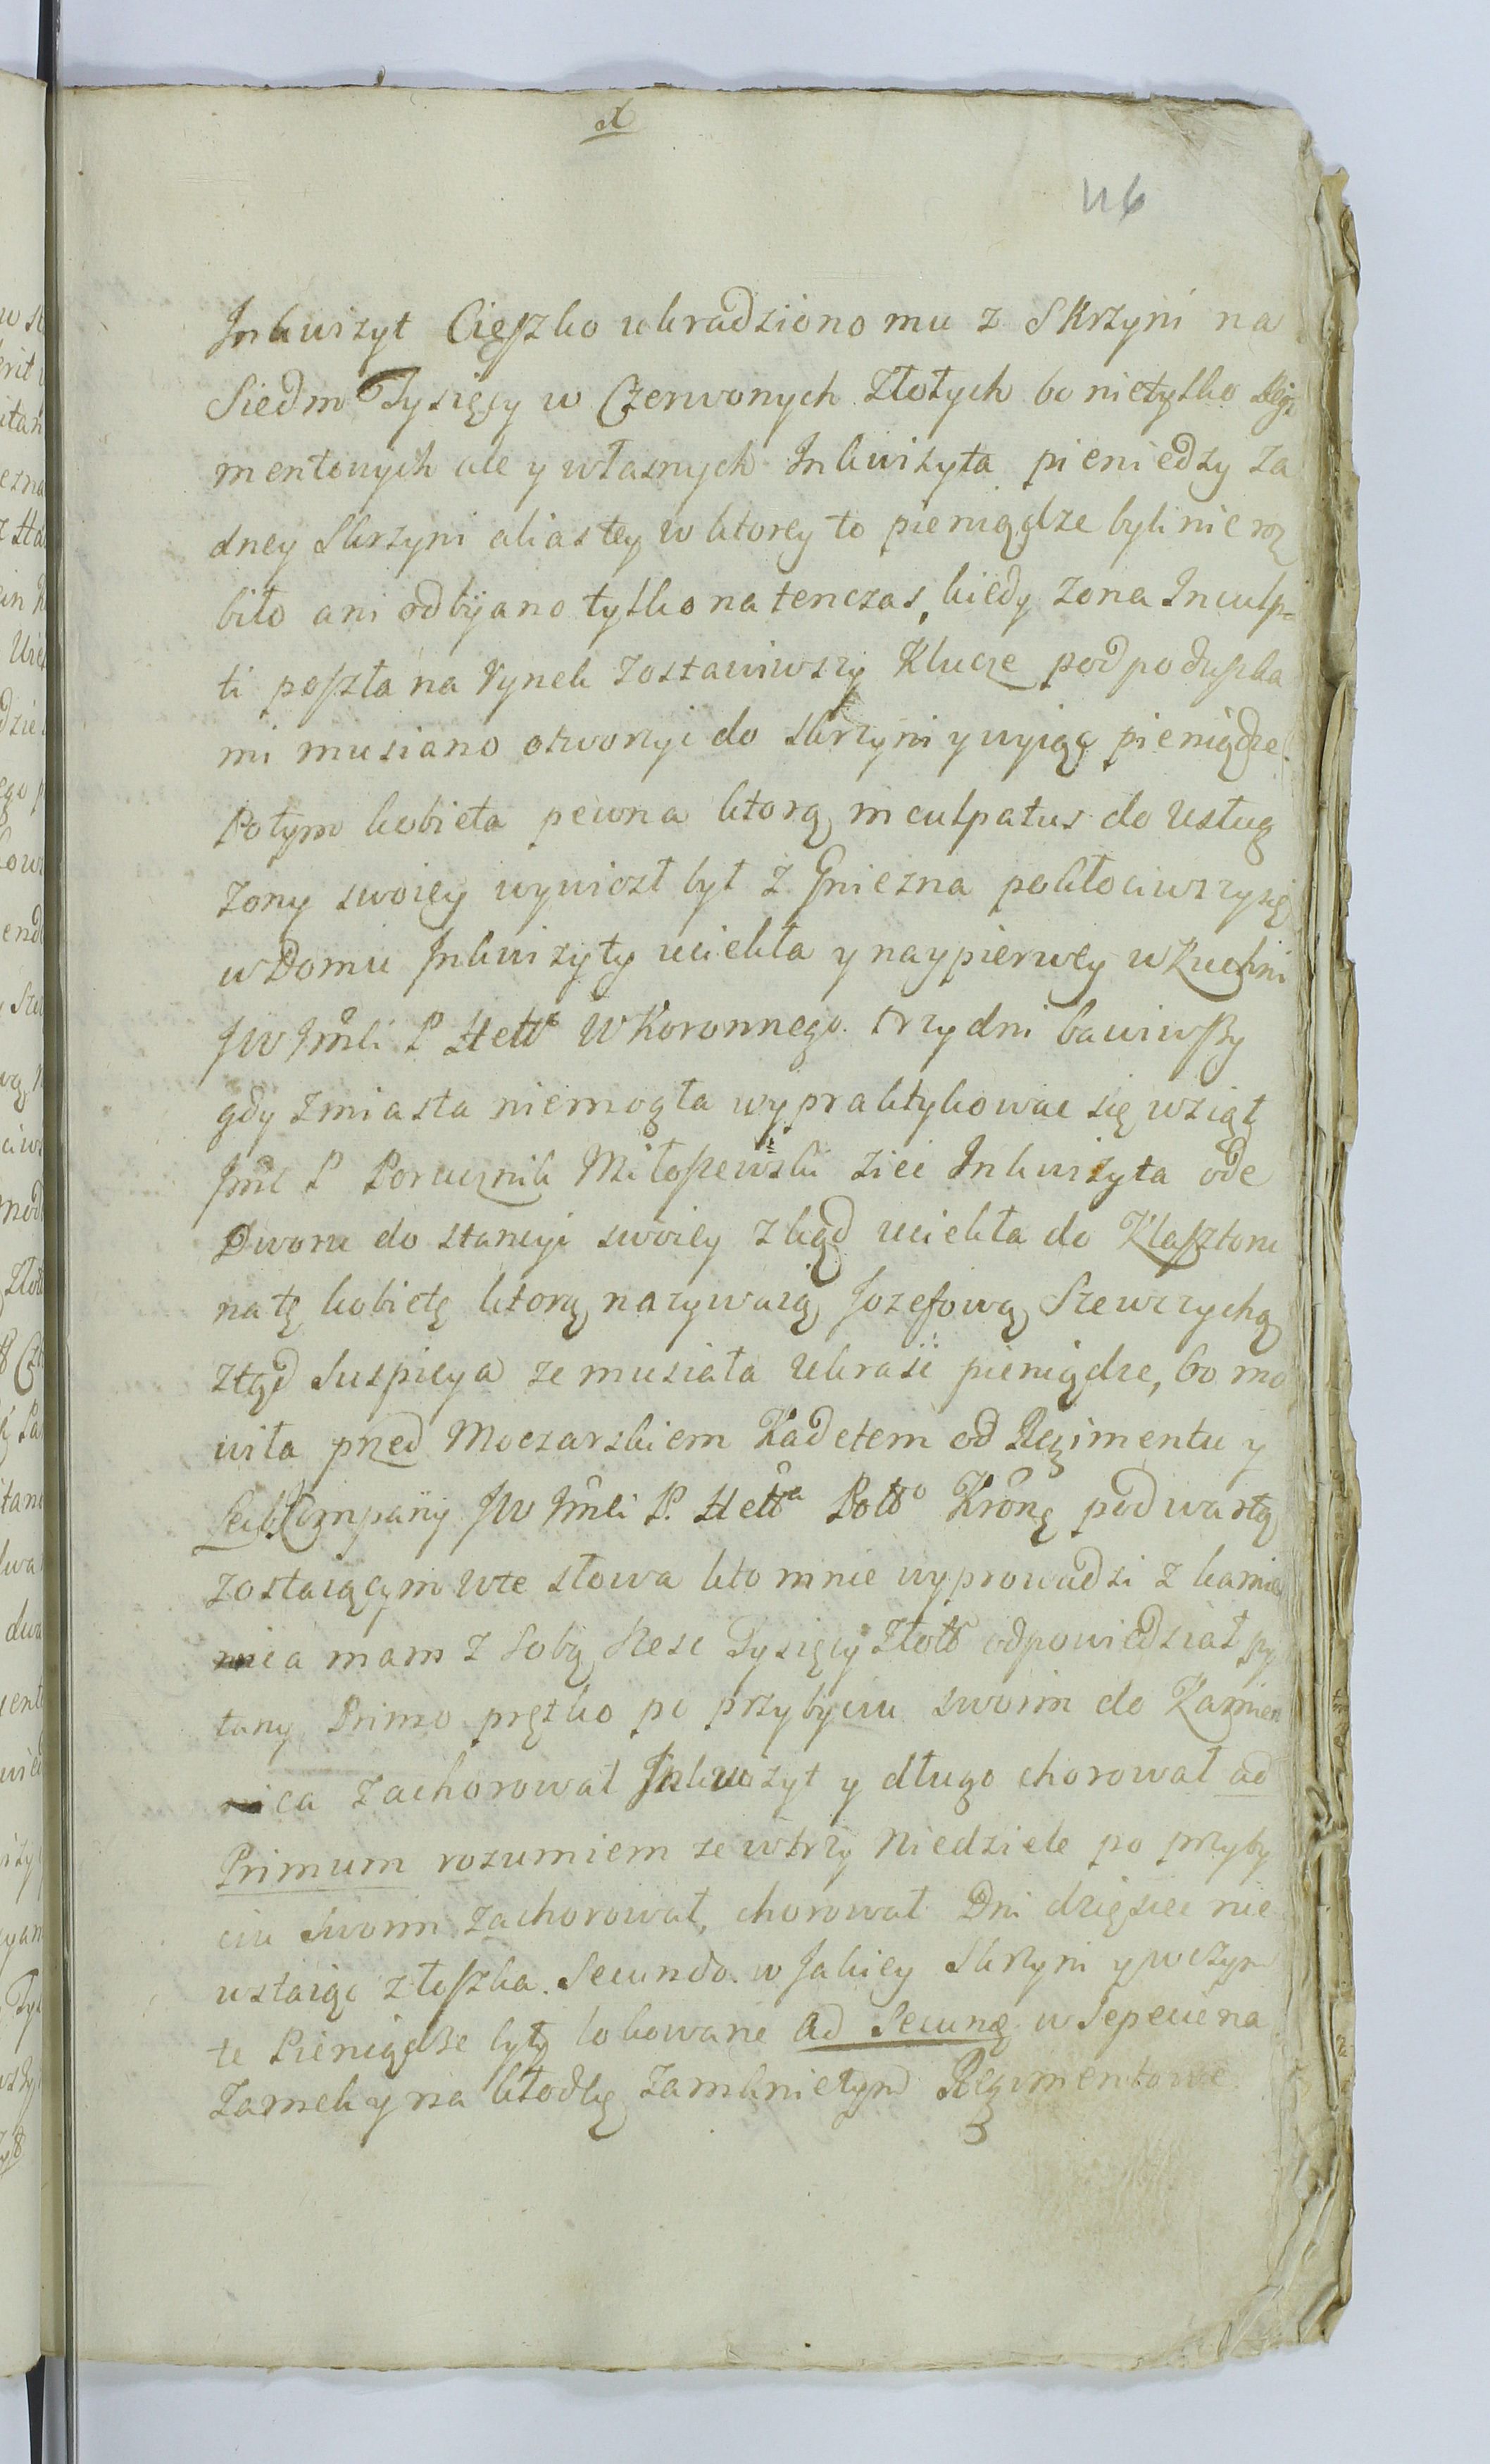 116
Inkwizyt Cięszko ukradziono mu z Skrzyni na
Siedm Tysięcy w Czerwonych Złotych bo nietylko Regi
mentowych ale y własnych Inkwizyta pieniedzy Za
dney Skrzyni alias tey w ktorey te pieniądze byli nie roz
bito ani odbijano tylko na tenczas, kiedy Zona Inculp=
ti poszła na Rynek Zostawiwszy Klucze pod poduszka
mi musiano otworzyc do skrzyni y wyiąc pieniądze.
Potym kobieta pewna ktorą inculpatus do Usług
Zony swoiey wywiozł był z Gniezna pokłociwszy się
w Domu Inkwizyty uciekła y naypierwey w Kuchni
JW Jmći P Hettª W Koronnego trzy dni bawiwszy
gdy z miasta niemogła wypraktykowac się wziął
Jmć P Porucznik Miłoszewski ziec Inkwizyta ode
Dworu do stancyi swoiey z kąd uciekła do Klasztoru
na tę kobietę ktorą nazywaią Jozefową Szewczychą
ztąd Suspicya ze musiała Ukraść pieniądze, bo mo
wiła przed Moczarskiem Kadetem od Regimentu y
Kompanij JW Jmći P. Hettª Polº Kronę pod wartą
zostaiącym w te słowa kto mnie wyprowadzi z kamie
nica mam z sobą Szesc Tysięcy Złott odpowiedział py
tany Primo prętko po przybyciu swoim do Kamien
ca Zachorował Inkwizyt y długo chorował ad
Primum rozumiem ze w trzy Niedziele po przyby
ciu swoim Zachorował, chorował Dni dziesiec nie
wstaiąc z łoszka. Secundo. w Jakiey Skrzyni y w czym
te Pieniądze byty lokowane Ad Secund w Sepecie na
Zamek y na kłodkę Zamknietym Regimentowe